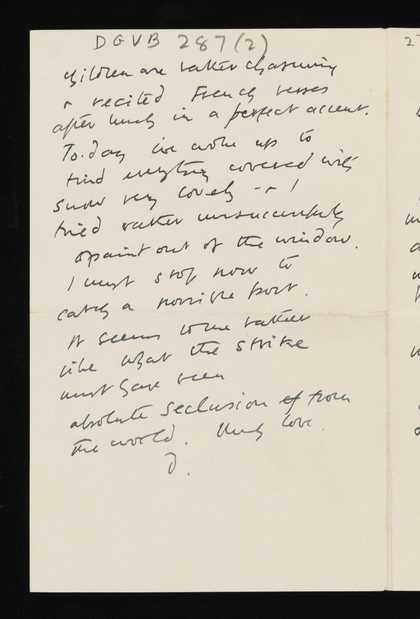 DGVB 287(2)
children are rather charming
& recited French verses
after lunch in a perfect accent.
To-day we woke up to
find everything covered with
snow very lovely -- I
tried rather unsuccessfully
to paint out of the window.
I must stop now to
catch a horrible post.
It seems to me rather
like what the strike
must have been
absolute seclusion from
the world. Much love.
D.
27